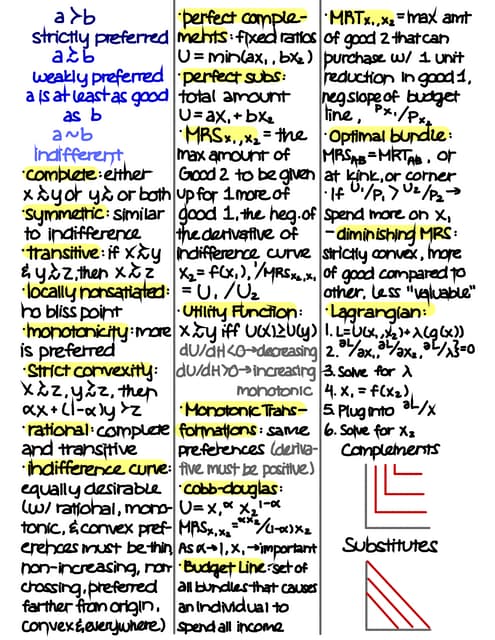 a ≻ b
strictly preferred
a ≿ b
weakly preferred
a is at least as good
as b
a ~ b
indifferent
·complete: either
x ≿ y or y ≿ x or both
·symmetric: similar
to indifference
·transitive: if x ≿ y
& y ≿ z, then x ≿ z
·locally nonsatiated:
no bliss point
·monotonicity: more
is preferred
·strict convexity:
x ≿ z, y ≿ z, then
αx + (1-α)y ≻ z
·rational: complete
and transitive
·indifference curve:
equally desirable
(w/ rational, mono-
tonic, & convex pref-
erences must be thin,
non-increasing, non
crossing, preferred
farther from origin,
convex & everywhere)
·perfect comple-
ments: fixed ratios
U = min(ax₁, bx₂)
·perfect subs:
total amount
U = ax₁ + bx₂
·MRSx₁,x₂ = the
max amount of
Good 2 to be given
up for 1 more of
good 1, the neg. of
the derivative of
indifference curve
x₂ = f(x₁), 1/MRSx₂,x₁
= U₁/U₂
·Utility Function:
x ≿ y iff U(x) ≥ U(y)
dU/dH<0→decreasing
dU/dH>0→increasing
monotonic
·Monotonic Trans-
formations: same
preferences (deriva-
tive must be positive)
·cobb-douglas:
U = x₁^α x₂^1-α
MRSx₁,x₂ = αx₂/(1-α)x₂
As α→1, x₁→important
·Budget Line: set of
all bundles that causes
an individual to
spend all income
·MRTx₁,x₂ = max amt
of good 2 that can
purchase w/ 1 unit
reduction in good 1,
neg slope of budget
line, Px₁/Px₂
·Optimal bundle:
MRSAB = MRTAB, or
at kink, or corner
·If U₁/P₁ > U₂/P₂ →
spend more on x₁
-diminishing MRS:
strictly convex, more
of good compared to
other, less "valuable"
·Lagrangian:
1. L=U(x₁,x₂)+λ(g(x))
2. ∂L/∂x₁, ∂L/∂x₂, ∂L/λ}=0
3. Solve for λ
4. x₁ = f(x₂)
5. Plug into ∂L/x
6. Solve for x₂
Complements
Substitutes